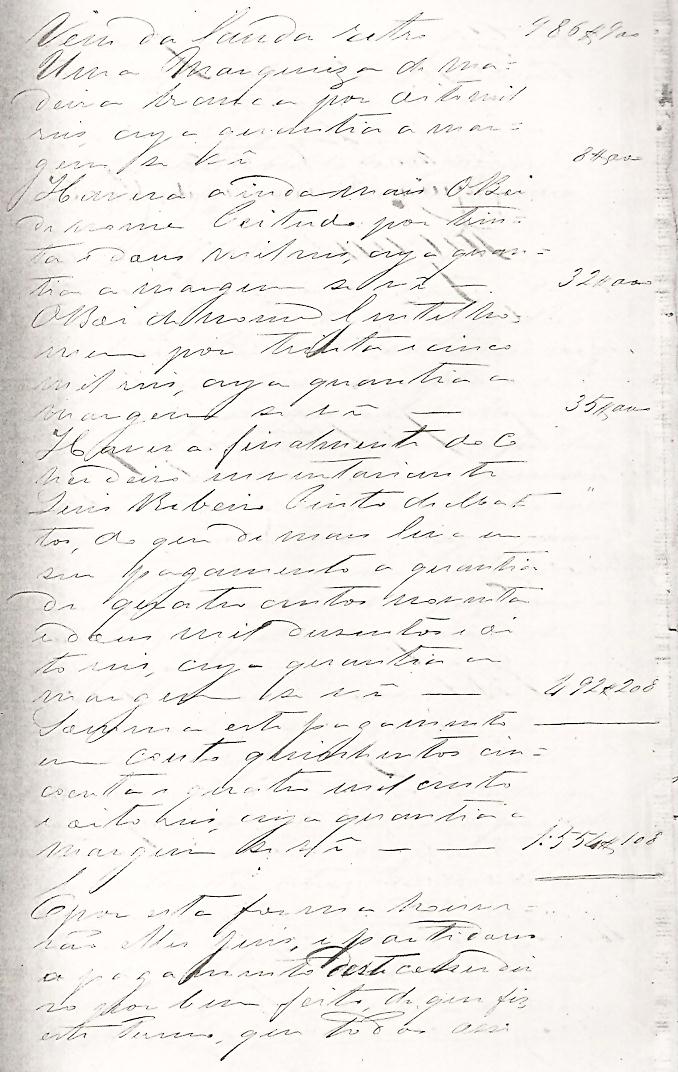 Vem da lauda retro 986$900
Uma Marqueiza de ma=
deira branca por oito mil
reis, cuja quantia a mar=
gem se vê 8$000
Havera ainda mais O Boi
de nome Peitudo por trin=
ta e dous mil reis, cuja quan=
tia a margem se vê — 32$000
O Boi de nome Gentilho=
mem por trinta e cinco
mil reis, cuja quantia a
margem se vê — 35$000
Havera finalmente do Co
herdeiro inventariante
Luis Ribeiro Pinto de Mat
tos, do que de mais leva em
seu pagamento a quantia
de quatro centos noventa
e dous mil duzentos e oi
to reis, cuja quantia a
margem se vê — 492$208
Somma este pagamento
um conto quinhentos cin=
coenta e quatro mil cento
e oito reis, cuja quantia a
margem se vê — — 1:554$108
E por esta forma houve=
rão elles Juis, e partidores
o pagamento deste coherdei
ro por bem feito, de que fiz
este termo, que todos assi